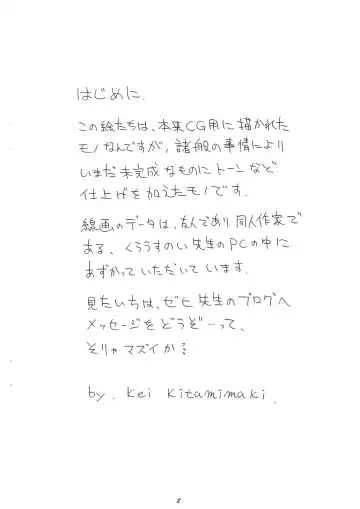 はじめに.
この絵たちは、本来CG用に描かれた
モノなんですが、諸般の事情により
いまだ未完成なものにトーンなど
仕上げを加えたモノです.
線画のデータは、友人であり同人作家で
ある、くろうすのい先生のPCの中に
あずかっていただいています.
見たい方は、ゼヒ先生のブログへ
メッセージをどうぞ…って、
そりゃマズイか?
by. Kei Kitamimaki.
2